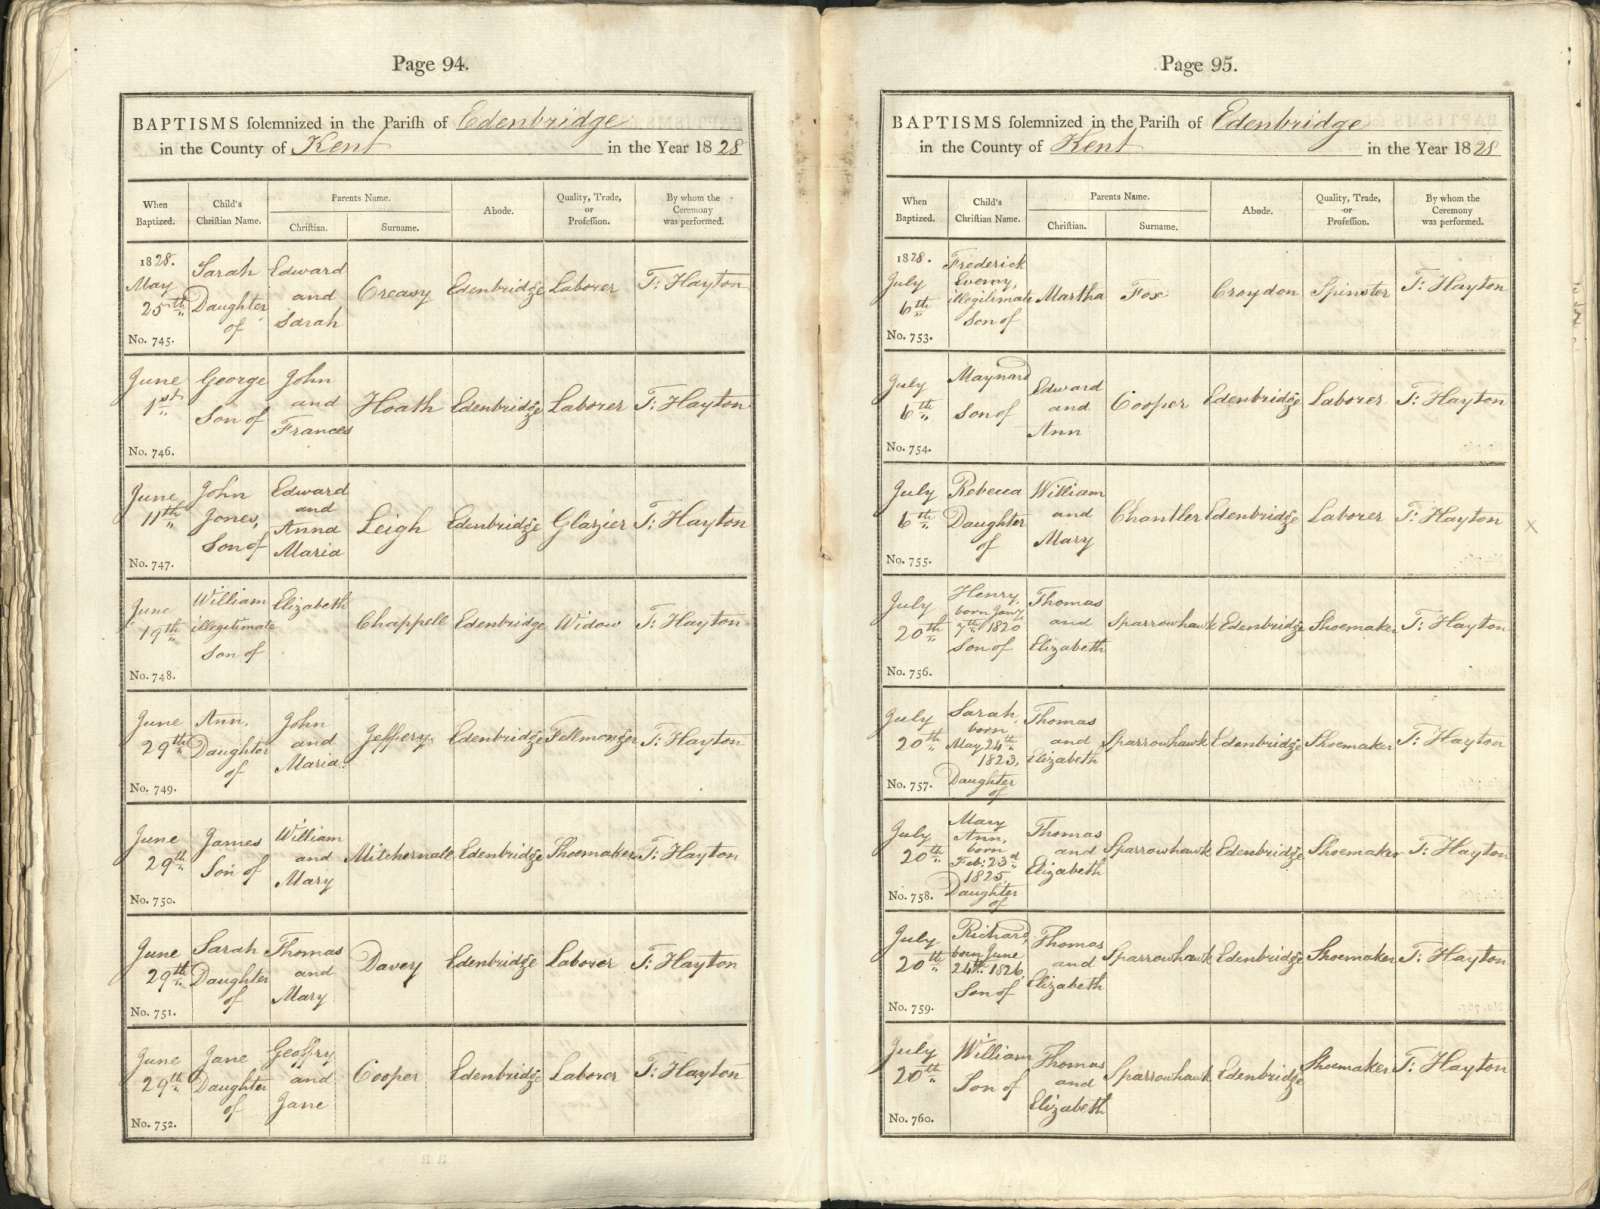 Page 94.
BAPTISMS solemnized in the Parish of Edenbridge
in the County of Kent in the Year 1828
When Baptized.
Child's Christian Name.
Parents Name.
Christian.
Surname.
Abode.
Quality, Trade, or Profession.
By whom the Ceremony was performed.
1828.
May
25th
No. 745.
Sarah
Daughter
of
Edward
and
Sarah
Creasy
Edenbridge
Laborer
T: Hayton
June
1st
No. 746.
George
Son of
John
and
Frances
Hoath
Edenbridge
Laborer
T: Hayton
June
11th
No. 747.
John
Jones,
Son of
Edward
and
Anna
Maria
Leigh
Edenbridge
Glazier
T: Hayton
June
19th
No. 748.
William
illegitimate
Son of
Elizabeth
Chappell
Edenbridge
Widow
T: Hayton
June
29th
No. 749.
Ann,
Daughter
of
John
and
Maria
Jeffery
Edenbridge
Fellmonger
T: Hayton
June
29th
No. 750.
James
Son of
William
and
Mary
Mitchernall
Edenbridge
Shoemaker
T: Hayton
June
29th
No. 751.
Sarah
Daughter
of
Thomas
and
Mary
Davey
Edenbridge
Laborer
T: Hayton
June
29th
No. 752.
Jane
Daughter
of
Geoffry
and
Jane
Cooper
Edenbridge
Laborer
T: Hayton
Page 95.
BAPTISMS solemnized in the Parish of Edenbridge
in the County of Kent in the Year 1828
When Baptized.
Child's Christian Name.
Parents Name.
Christian.
Surname.
Abode.
Quality, Trade, or Profession.
By whom the Ceremony was performed.
1828.
July
6th
No. 753.
Frederick
illegitimate
Son of
Martha
Fox
Croydon
Spinster
T: Hayton
July
6th
No. 754.
Maynard
Son of
Edward
and
Ann
Cooper
Edenbridge
Laborer
T: Hayton
July
6th
No. 755.
Rebecca
Daughter
of
William
and
Mary
Chantler
Edenbridge
Laborer
T: Hayton
July
20th
No. 756.
Henry,
born Jany
7th 1820
Son of
Thomas
and
Elizabeth
Sparrowhawk
Edenbridge
Shoemaker
T: Hayton
July
20th
No. 757.
Sarah,
born
May 24th
1823,
Daughter
of
Thomas
and
Elizabeth
Sparrowhawk
Edenbridge
Shoemaker
T: Hayton
July
20th
No. 758.
Mary
Ann,
born
Feb: 23d
1825
Daughter
of
Thomas
and
Elizabeth
Sparrowhawk
Edenbridge
Shoemaker
T: Hayton
July
20th
No. 759.
Richard,
born June
24th 1826,
Son of
Thomas
and
Elizabeth
Sparrowhawk
Edenbridge
Shoemaker
T: Hayton
July
20th
No. 760.
William
Son of
Thomas
and
Elizabeth
Sparrowhawk
Edenbridge
Shoemaker
T: Hayton